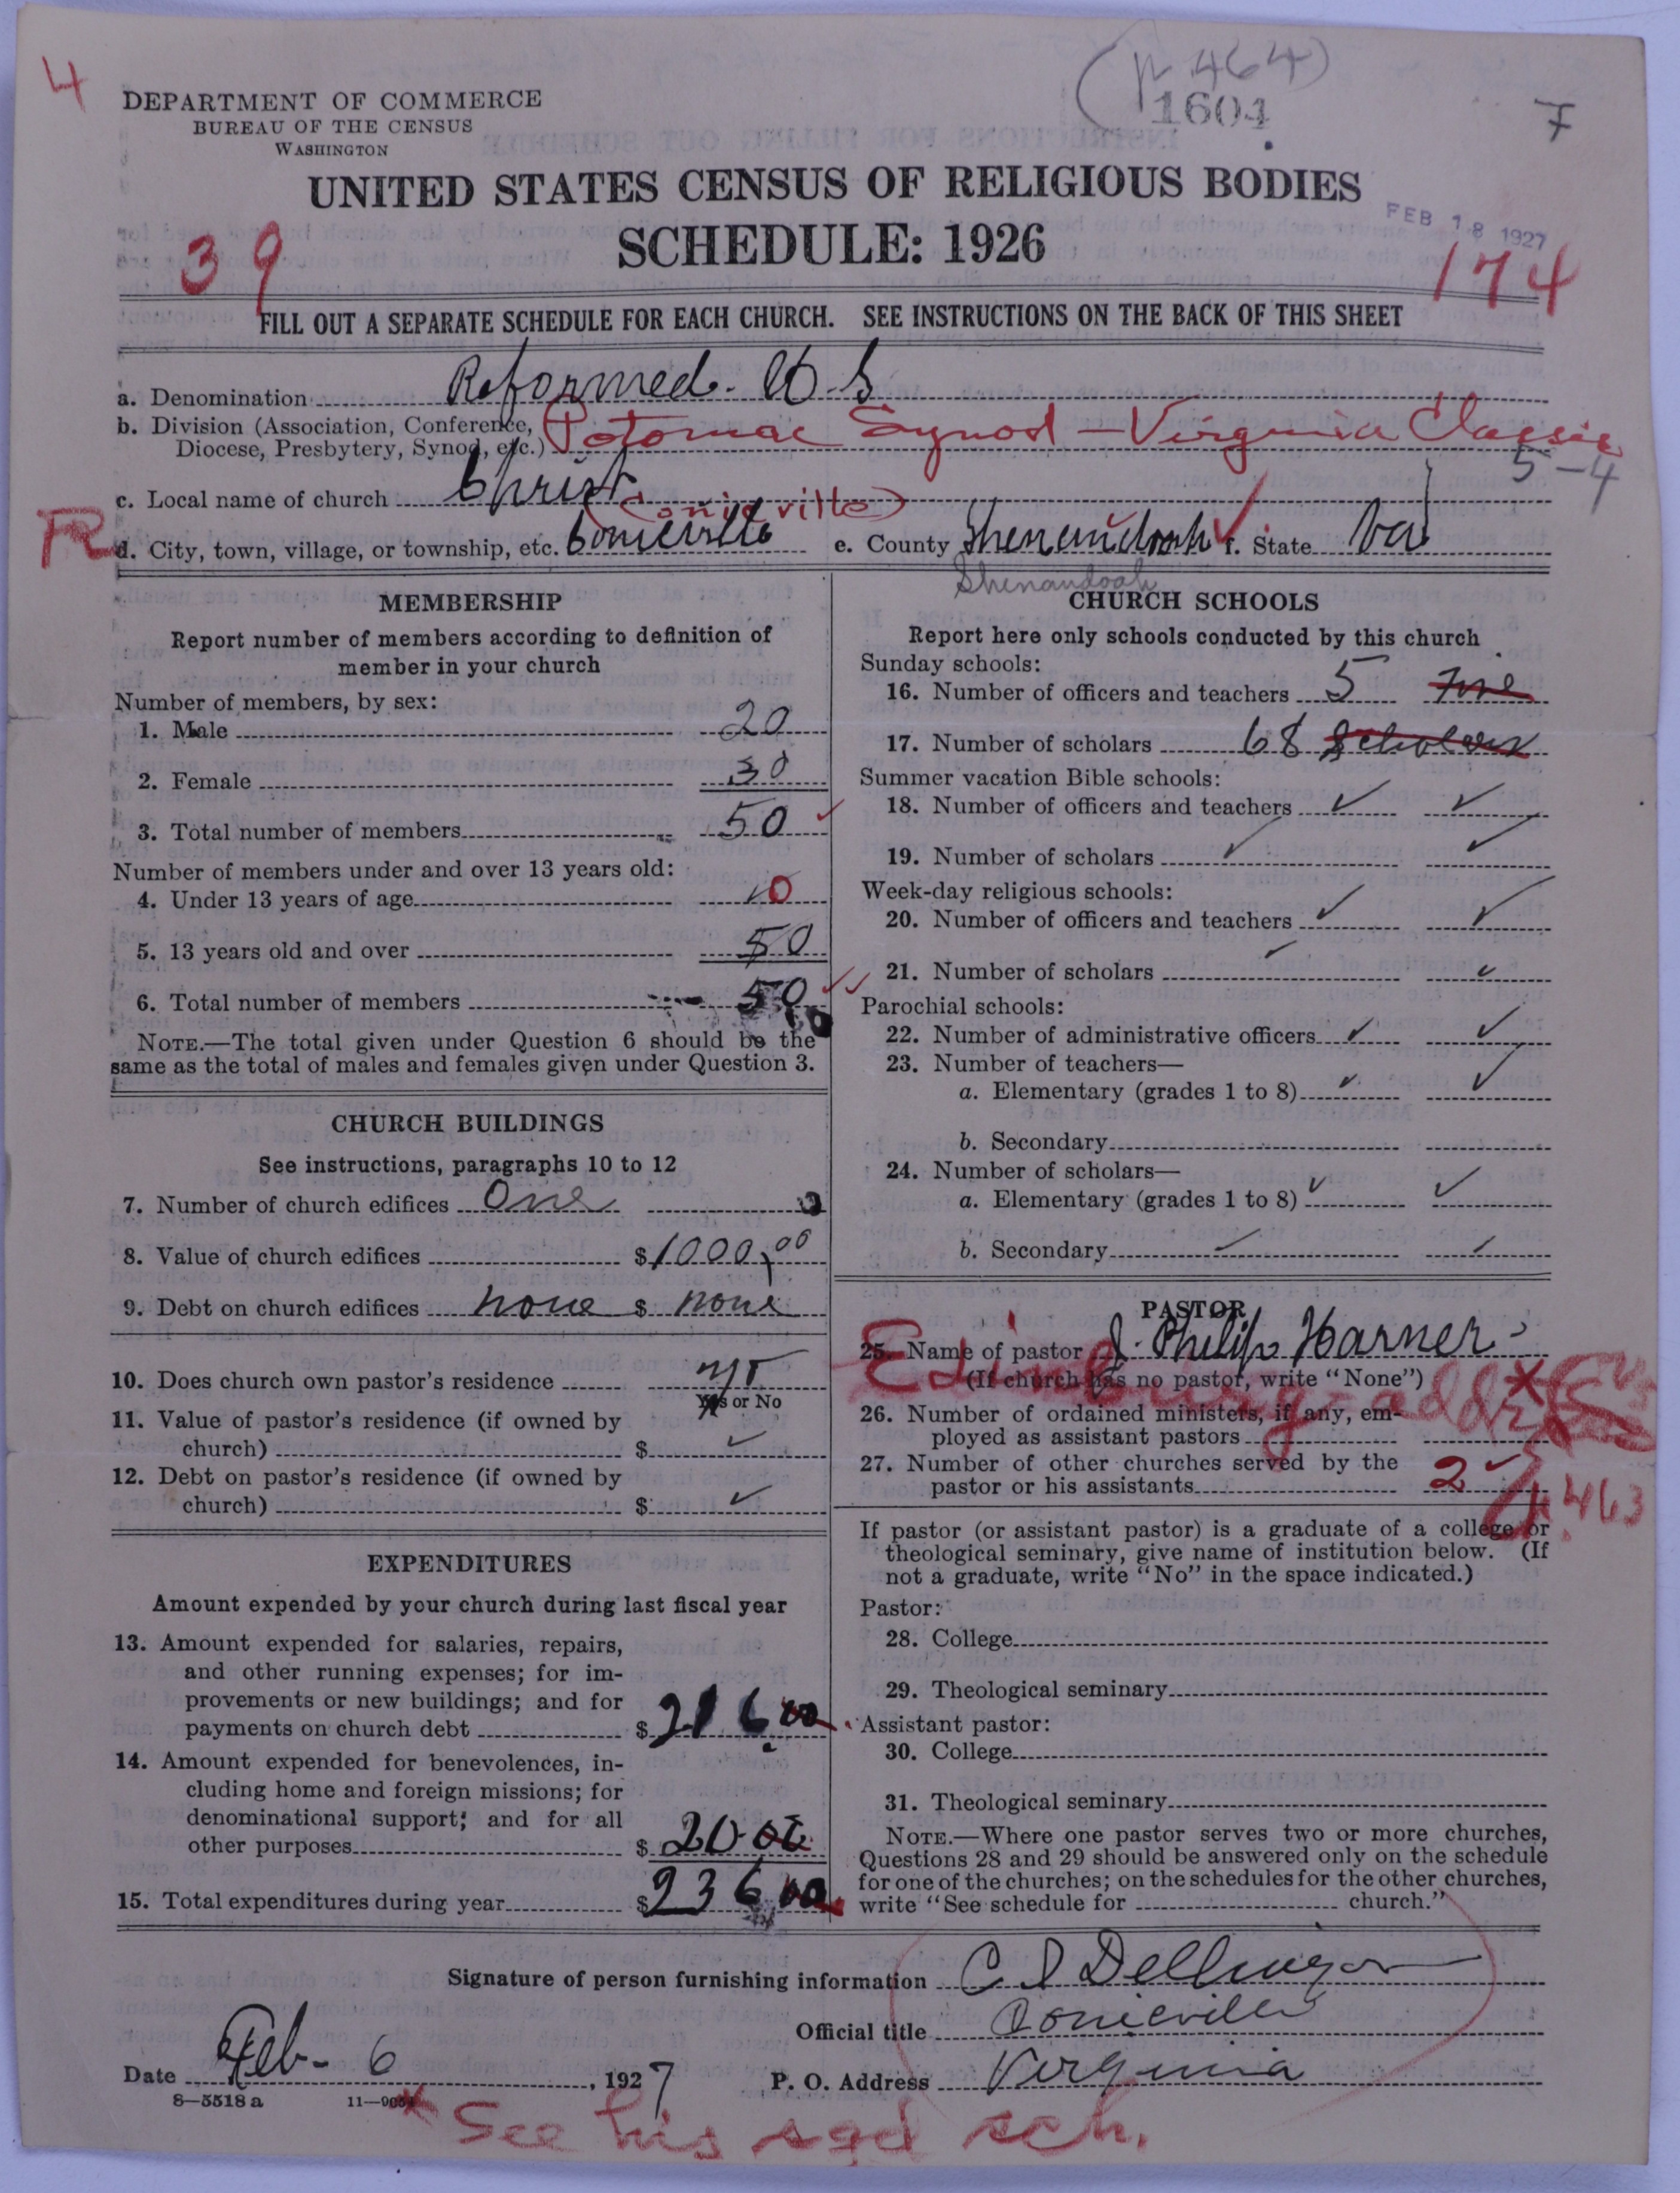 4
(p 464)
1604
7
DEPARTMENT OF COMMERCE
BUREAU OF THE CENSUS
WASHINGTON
UNITED STATES CENSUS OF RELIGIOUS BODIES
SCHEDULE: 1926
FEB 18 1927
39
174
FILL OUT A SEPARATE SCHEDULE FOR EACH CHURCH. SEE INSTRUCTIONS ON THE BACK OF THIS SHEET
a. Denomination Reformed. U.S
b. Division (Association, Conference,
Diocese, Presbytery, Synod, etc.) Potomac Synod - Virginia Classis
5-4
c. Local name of church Christ
(Conicville)
FR
d. City, town, village, or township, etc. Conicville e. County Shenandoah f. State Va
Shenandoah
MEMBERSHIP
Report number of members according to definition of
member in your church
Number of members, by sex:
1. Male 20
2. Female 30
3. Total number of members 50
Number of members under and over 13 years old:
4. Under 13 years of age 0
5. 13 years old and over 50
6. Total number of members 50
NOTE.—The total given under Question 6 should be the
same as the total of males and females given under Question 3.
CHURCH BUILDINGS
See instructions, paragraphs 10 to 12
7. Number of church edifices One
8. Value of church edifices $1000,00
9. Debt on church edifices none $ none
10. Does church own pastor's residence
Yes or No
11. Value of pastor's residence (if owned by
church) $ ✓
12. Debt on pastor's residence (if owned by
church) $ ✓
EXPENDITURES
Amount expended by your church during last fiscal year
13. Amount expended for salaries, repairs,
and other running expenses; for im-
provements or new buildings; and for
payments on church debt $ 216 00
14. Amount expended for benevolences, in-
cluding home and foreign missions; for
denominational support; and for all
other purposes $ 20.00
15. Total expenditures during year $ 236 00
CHURCH SCHOOLS
Report here only schools conducted by this church
Sunday schools:
16. Number of officers and teachers 5 Five
17. Number of scholars 68 Scholars
Summer vacation Bible schools:
18. Number of officers and teachers ✓ ✓
19. Number of scholars ✓ ✓
Week-day religious schools:
20. Number of officers and teachers ✓ ✓
21. Number of scholars ✓ ✓
Parochial schools:
22. Number of administrative officers ✓ ✓
23. Number of teachers—
a. Elementary (grades 1 to 8) ✓ ✓
b. Secondary
24. Number of scholars—
a. Elementary (grades 1 to 8) ✓ ✓
b. Secondary ✓ ✓
PASTOR
25. Name of pastor J. Philip Harner
(If church has no pastor, write "None")
Edinburg - addr
26. Number of ordained ministers, if any, em-
ployed as assistant pastors
27. Number of other churches served by the
pastor or his assistants 2 ✓
463
If pastor (or assistant pastor) is a graduate of a college or
theological seminary, give name of institution below. (If
not a graduate, write "No" in the space indicated.)
Pastor:
28. College
29. Theological seminary
Assistant pastor:
30. College
31. Theological seminary
NOTE.—Where one pastor serves two or more churches,
Questions 28 and 29 should be answered only on the schedule
for one of the churches; on the schedules for the other churches,
write "See schedule for church."
Signature of person furnishing information C I Dellinger
Official title Conicville
Date Feb- 6, 1927 P. O. Address Virginia
8—5518 a
* See his sgd sch.